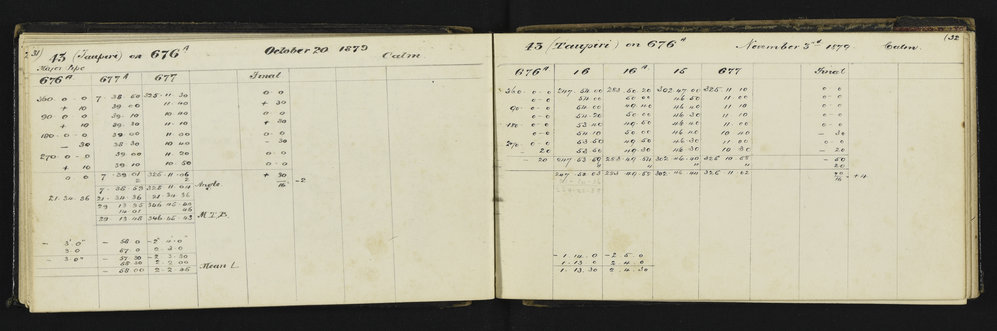 31)
43 (Taupiri) on 676ᴬ October 20 1879
Calm.
676ᴬ 677ᴬ 677 Final
360 0 0 7 38 50 325 11 30 0 0
+ 10 39 00 11 40 + 30
90 0 0 39 10 10 40 0 0
+ 10 39 20 11 10 + 30
180 0 0 39 00 11 00 0 0
- 30 38 30 10 40 - 30
270 0 0 39 00 11 20 0 0
+ 10 39 10 10 50 0 0
0 0 7 39 01 325 11 06 + 30
2 2 16 -2
7 38 59 325 11 04 Angle
21 34 36 21 34 36 21 34 36
29 13 35 346 45 40
29 13 48 346 45 43 M.T.B.
- 3 0 - 58 0 - 2 4 0
3 0 57 0 2 3 0
- 3 0 - 57 30 - 2 3 30
58 30 2 2 00
- 58 00 2 2 45 Mean L.
(32
43 (Taupiri) on 676ᴬ November 3rd 1879 Calm.
676ᴬ 16 16ᴬ 15 677 Final
360 0 0 247 54 00 253 50 20 302 47 00 325 11 10 0 0
0 0 54 00 50 00 46 50 11 00 0 0
90 0 0 54 00 49 40 46 40 11 10 0 0
0 0 54 20 50 00 46 30 11 10 0 0
180 0 0 53 40 49 50 46 40 11 00 0 0
0 0 54 10 50 00 46 40 10 40 - 30
270 0 0 53 50 49 50 46 30 11 00 0 0
- 20 53 50 49 30 46 30 10 30 - 20
- 20 247 53 59 253 49 54 302 46 40 325 10 58 - 50
20
247 52 03 253 49 58 302 46 44 325 11 02
16 + 4
- 1 14 0 - 2 5 0
1 13 0 2 4 0
1 13 30 2 4 30